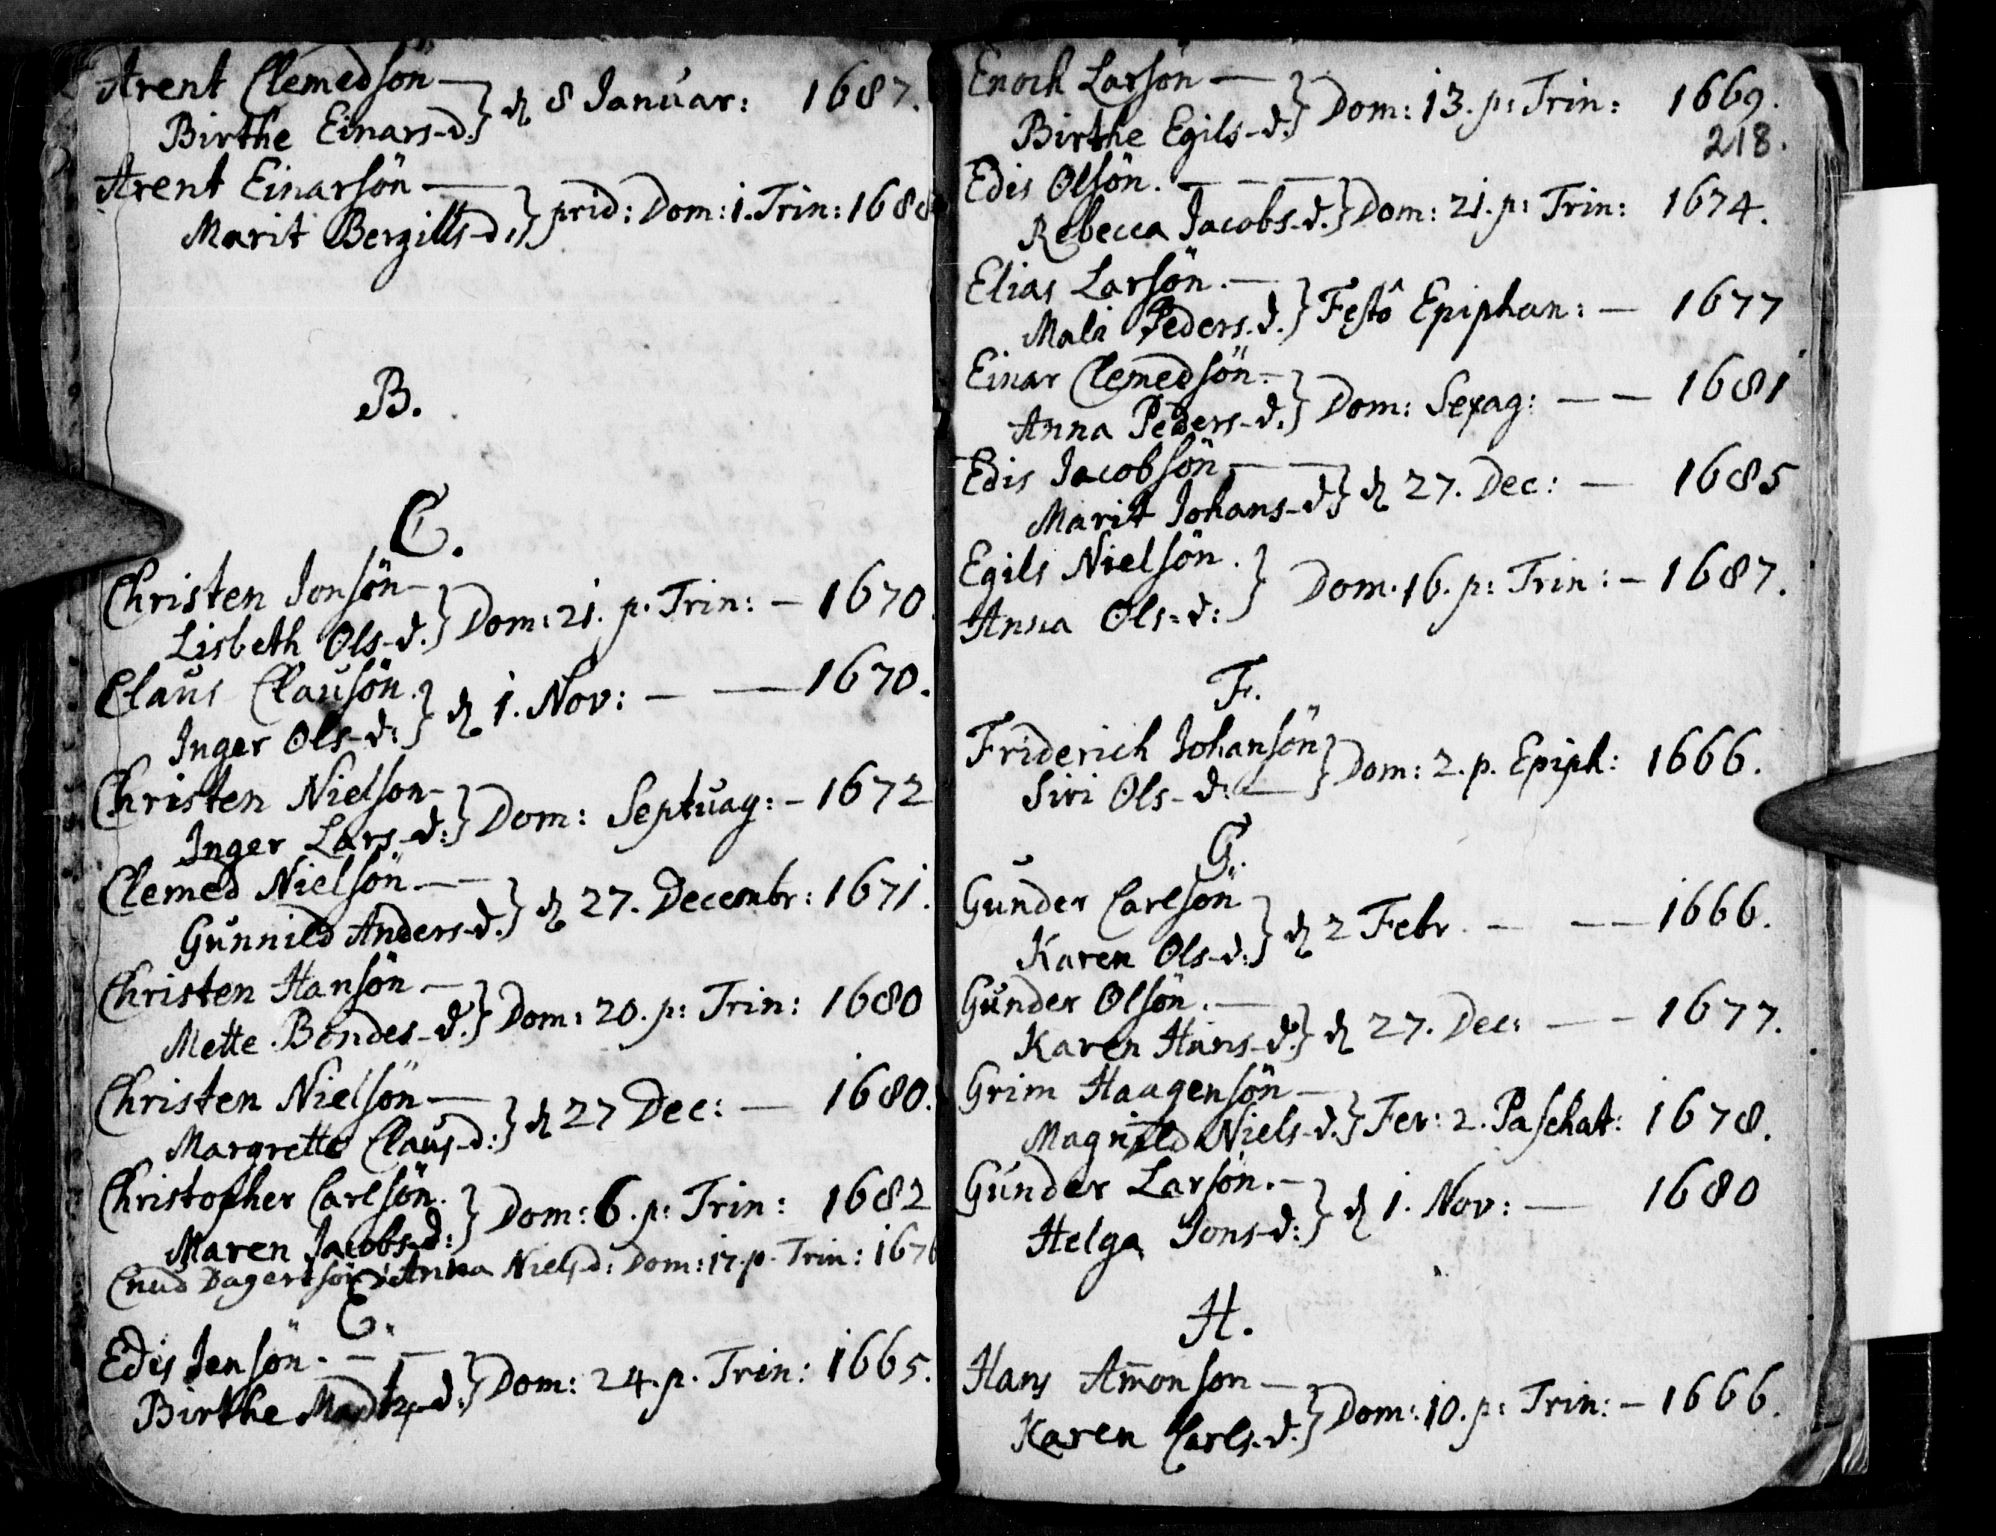 Arent Clemedsön — } d 8 Januar: 1687.
Birthe Einars-d.
Arent Einarsön — } prid: Dom: 1. Trin: 168
Marit Bergills-d.
B.
C.
Christen Jonsön — } Dom: 21. p. Trin: — 1670.
Lisbeth Ols-d.
Claus Clausön. } d 1. Nov: — — 1670.
Inger Ols-d:
Christen Nielson — } Dom: Septuag: — 1672
Inger Lars-d:
Clemed Nielsön — — } d 27. Decembr: 1671.
Gunnild Anders-d.
Christen Hansön — } Dom: 20. p: Trin: 1680
Mette Bendes-d.
Christen Nielsön — } d 27 Dec: — 1680.
Margrette Claus-d:
Christopher Carlsön. } Dom: 6. p: Trin: 1682
Maren Jacobs-d:
Cnud Dagertsön: Anna Niels-d: Dom: 17. p. Trin: 167
E.
Edis Jensön. — — } Dom: 24. p. Trin: 1665.
Birthe -d.
Enoch Larsön — } Dom: 13. p: Trin: 1669.
Birthe Egils-d.
218.
Edis Olsön. — — — } Dom: 21. p: Trin: 1674.
Rebecca Jacobs-d.
Elias Larsön. — } Festô Epiphan: — 1677
Mali Peders-d.
Einar Clemedsön — } Dom: Sexag: — — 1681
Anna Peders-d.
Edis Jacobsön — — } d 27. Dec: — 1685
Marit Johans-d
Egils Nielsön. } Dom. 16. p: Trin: — 1687.
Anna Ols-d:
F.
Friderich Johansön } Dom: 2. p. Epiph: 1666.
Siri Ols-d: —
G.
Gunder Carlsön } d 2 Febr. — — — 1666.
Karen Ols-d:
Gunder Olsön. — } d 27. Dec: — — 1677.
Karen Hans-d.
Grim Haagensön — } Fer: 2. Paschat: 1678.
Magnild Niels-d.
Gunder Larsön. — } d 1. Nov: — 1680
Helga Jons-d:
H.
Hans Am̄onson — } Dom: 10. p: Trin: — 1666.
Karen Carls-d.